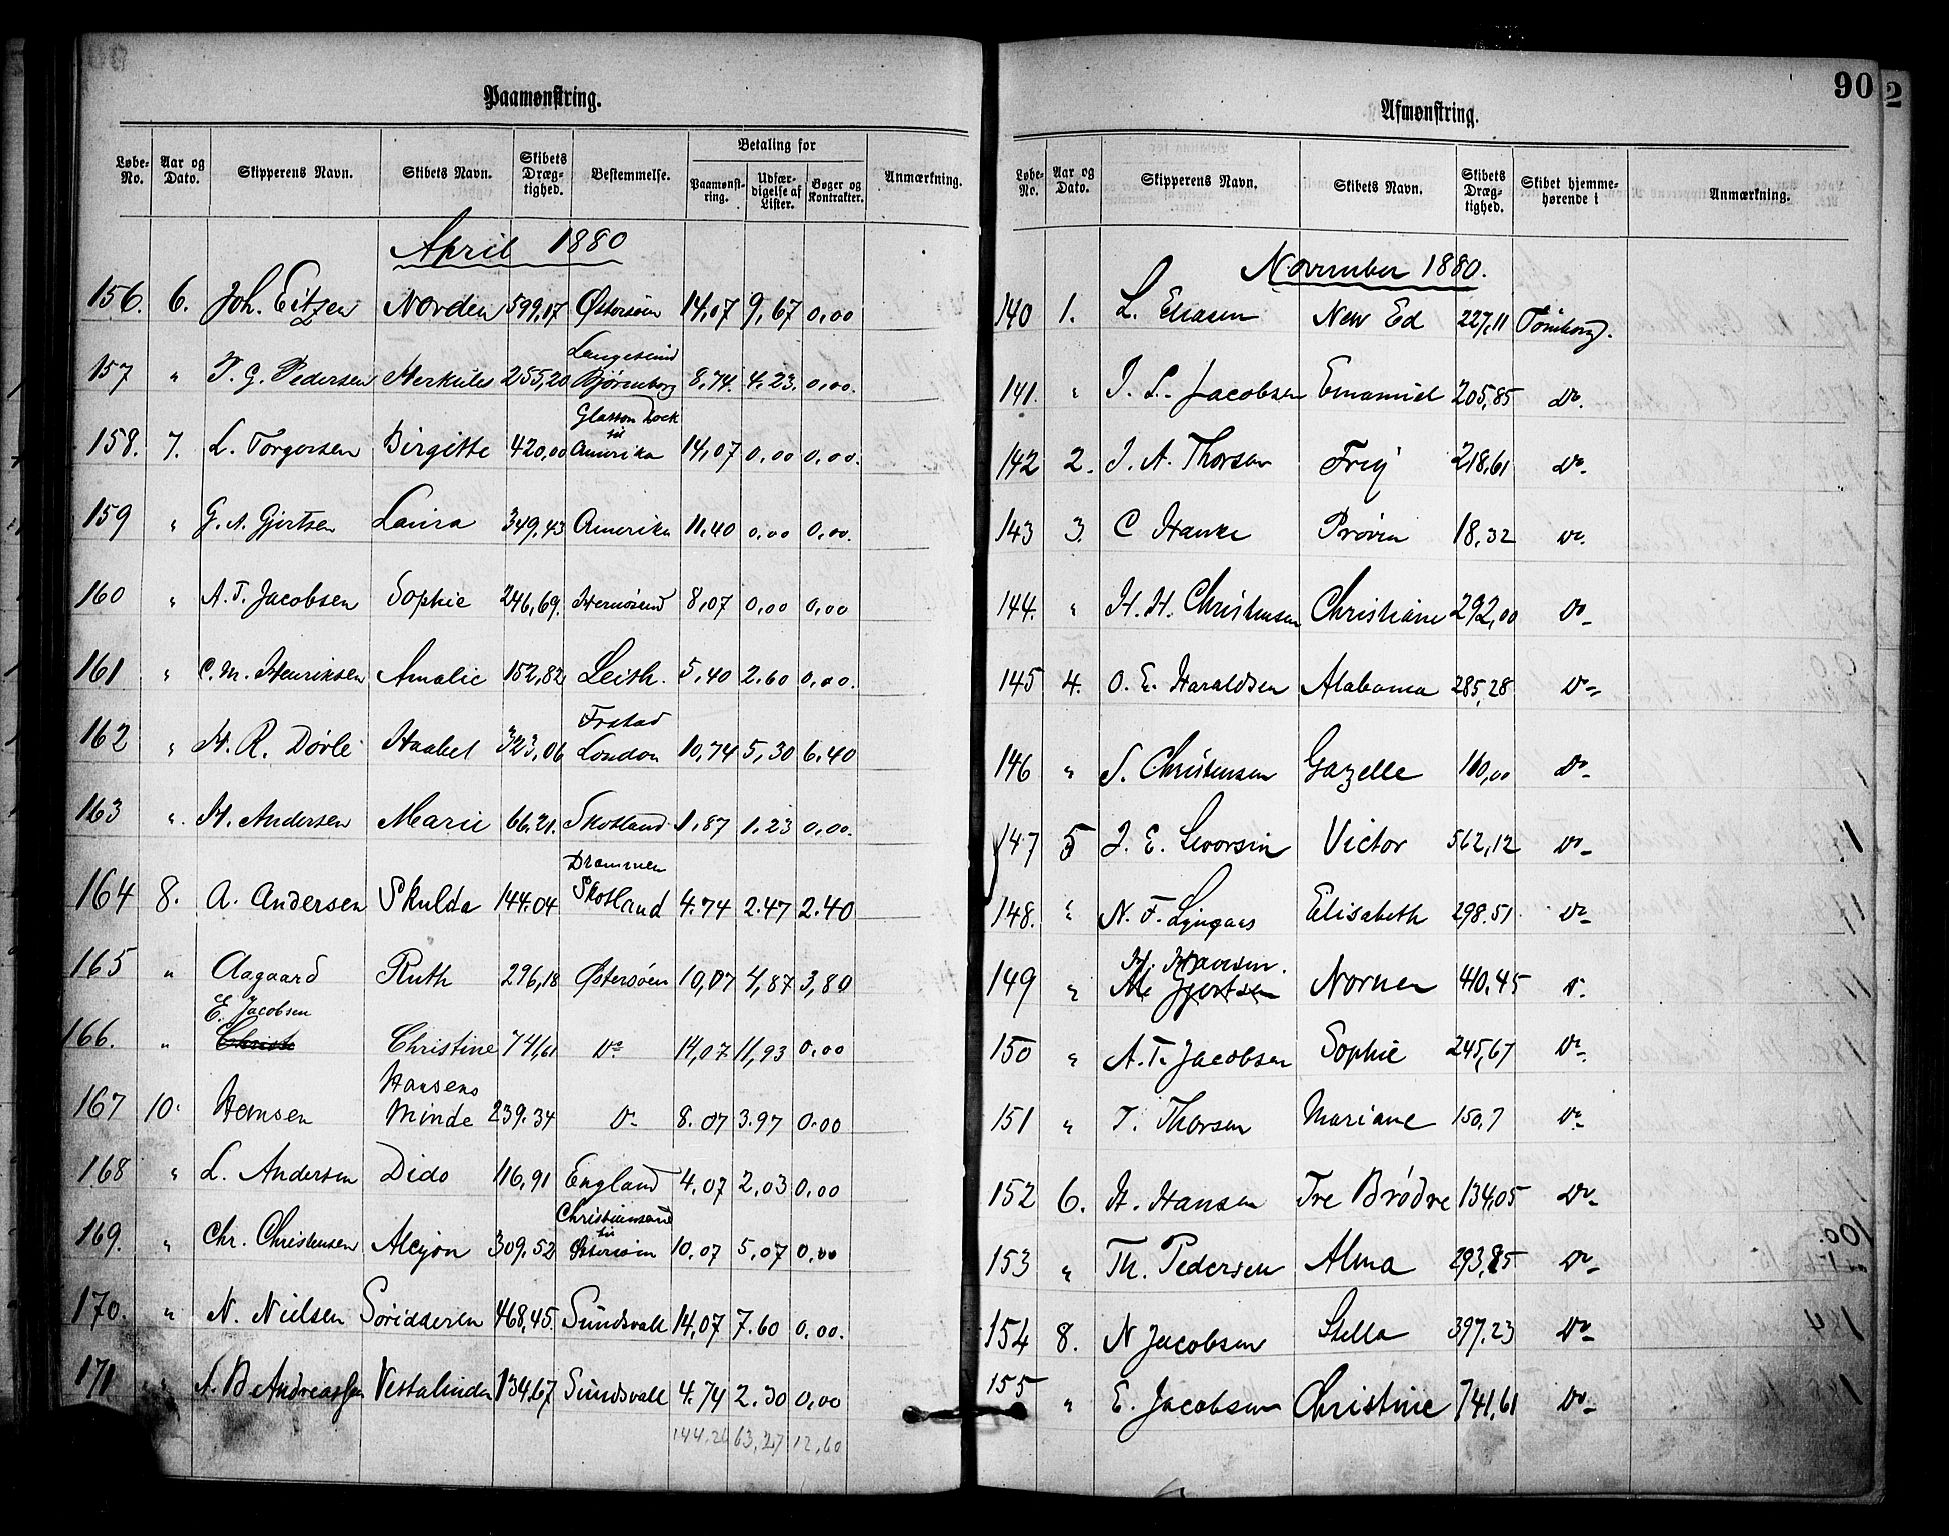 Paamønstring.
Løbe-No. Aar og Dato. Skipperens Navn. Skibets Navn. Skibets Dræg-tighed. Bestemmelse. Betaling for Paamønst-ring. Udfær-digelse af Lister. Bøger og Kontrakter. Anmærkning.
April 1880
156. 6. Joh. Eitzen Norden 599,17 Østersøen 14,07 9,67 0,00
Langesund
157 " P. G. Pedersen Herkules 255,20 Bjørneborg 8,74. 4,23. 0,00.
Glasson Dock
til
158. 7. L. Torgersen Birgitte 420,00 Amerika 14,07 0,00 0,00.
159 " G. A. Gjertsen Laura 349,43 Amerika 11,40 0,00 0,00.
160 " A. T. Jacobsen Sophie 246,69. Hernøsund 8,07 0,00 0,00
161 " C. M. Henriksen Amalie 152,82 Leith. 5,40 2,60 0,00.
Frstad
162 " H. R. Dørle Haabet 323,06 London 10,74 5,30 6.40
163 ". H. Andersen Marie 66.21. Skotland 1.87 1.23 0,00.
Drammen
164 8. A. Andersen Skulda 144.04 Skotland 4.74 2.47 2.40
165 " Aagaard Ruth 296,18 Østersøen 10,07 4,87 3,80
E. Jacobsen
166. " Christ Christine 741,61 Do 14,07 11,93 0.00
Hansens
167 10. Hansen Minde 239.34 Do 8.07 3.97 0.00
168 " L. Andersen Dido 116,91 England 4.07 2,03 0,00
Christiansand
til
169. " Chr. Christensen Alcyon 309,52 Østersøen 10,07 5,07 0,00
170. " N. Nielsen Søridderen 468,45. Sundsvall 14,07 7.60 0,00.
171 " A. B. Andreassen Vestalinden 134,67 Sundsvall 4.74 2.30 0,00
144.26 63,27 12,60
90
2
Afmønstring.
Løbe-No. Aar og Dato. Skipperens Navn. Skibets Navn. Skibets Dræg-tighed. Skibet hjemme-hørende i Anmærkning.
November 1880.
140 1. L. Eliasen New Ed 227,11 Tønsberg.
141. " J. L. Jacobsen Emanuel 205,85 Do.
142 2. J. A. Thorsen Freij 218,61 Do.
143 3. C Hanke Prøven 18,32 Do.
144. " H. H. Christensen Christiane 292,00 Do
145 4. O. E. Haraldsen Alabama 285,28 Do
146 " S. Christensen Gazelle 160,00 Do
147 5 J. E. Levorsen Victor 562,12 Do
148. " N. F. Lyngaas Elisabeth 298.51 Do
H. Hansen.
149 " M. Gjertsen Nornen 410.45 Do.
150 " A. T. Jacobsen Sophie 245,67 Do.
151 " T. Thorsen Mariane 150,7 Do.
152 6. H. Hansen Tre Brødre 134,05 Do
153 " Th. Pedersen Alma 293,85 Do
154 8. N Jacobsen Stella 397.23 Do
155 " E. Jacobsen Christine 741,61 Do